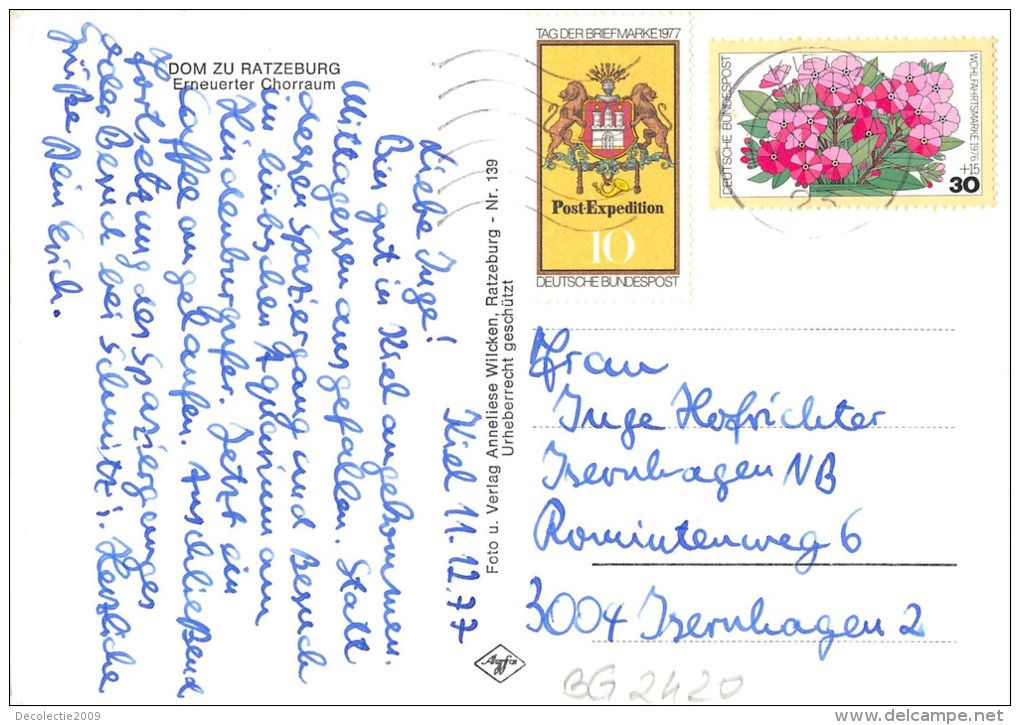 DOM ZU RATZEBURG
Erneuerter Chorraum
Kiel 11.12.77
Liebe Inge!
Bin gut in Kiel angekommen.
Mittagessen ausgefallen. Statt
dessen Spaziergang und Besuch
im hübschen Aquarium am
Hindenburgufer. Jetzt ein
Caffee angelaufen. Anschließend
Fortsetzung des Spazierganges
oder Besuch bei Schmitz'. Herzliche
Grüße Dein Erich.
Foto u. Verlag Anneliese Wilcken, Ratzeburg - Nr. 139
Urheberrecht geschützt
Agfa
TAG DER BRIEFMARKE 1977
Post-Expedition
10
DEUTSCHE BUNDESPOST
DEUTSCHE BUNDESPOST
WOHLFAHRTSMARKE 1976
+15
30
Frau
Inge Hofrichter
Isernhagen NB
Romintenweg 6
3004 Isernhagen 2
BG 2420
Decolectie2009
delcampe.net